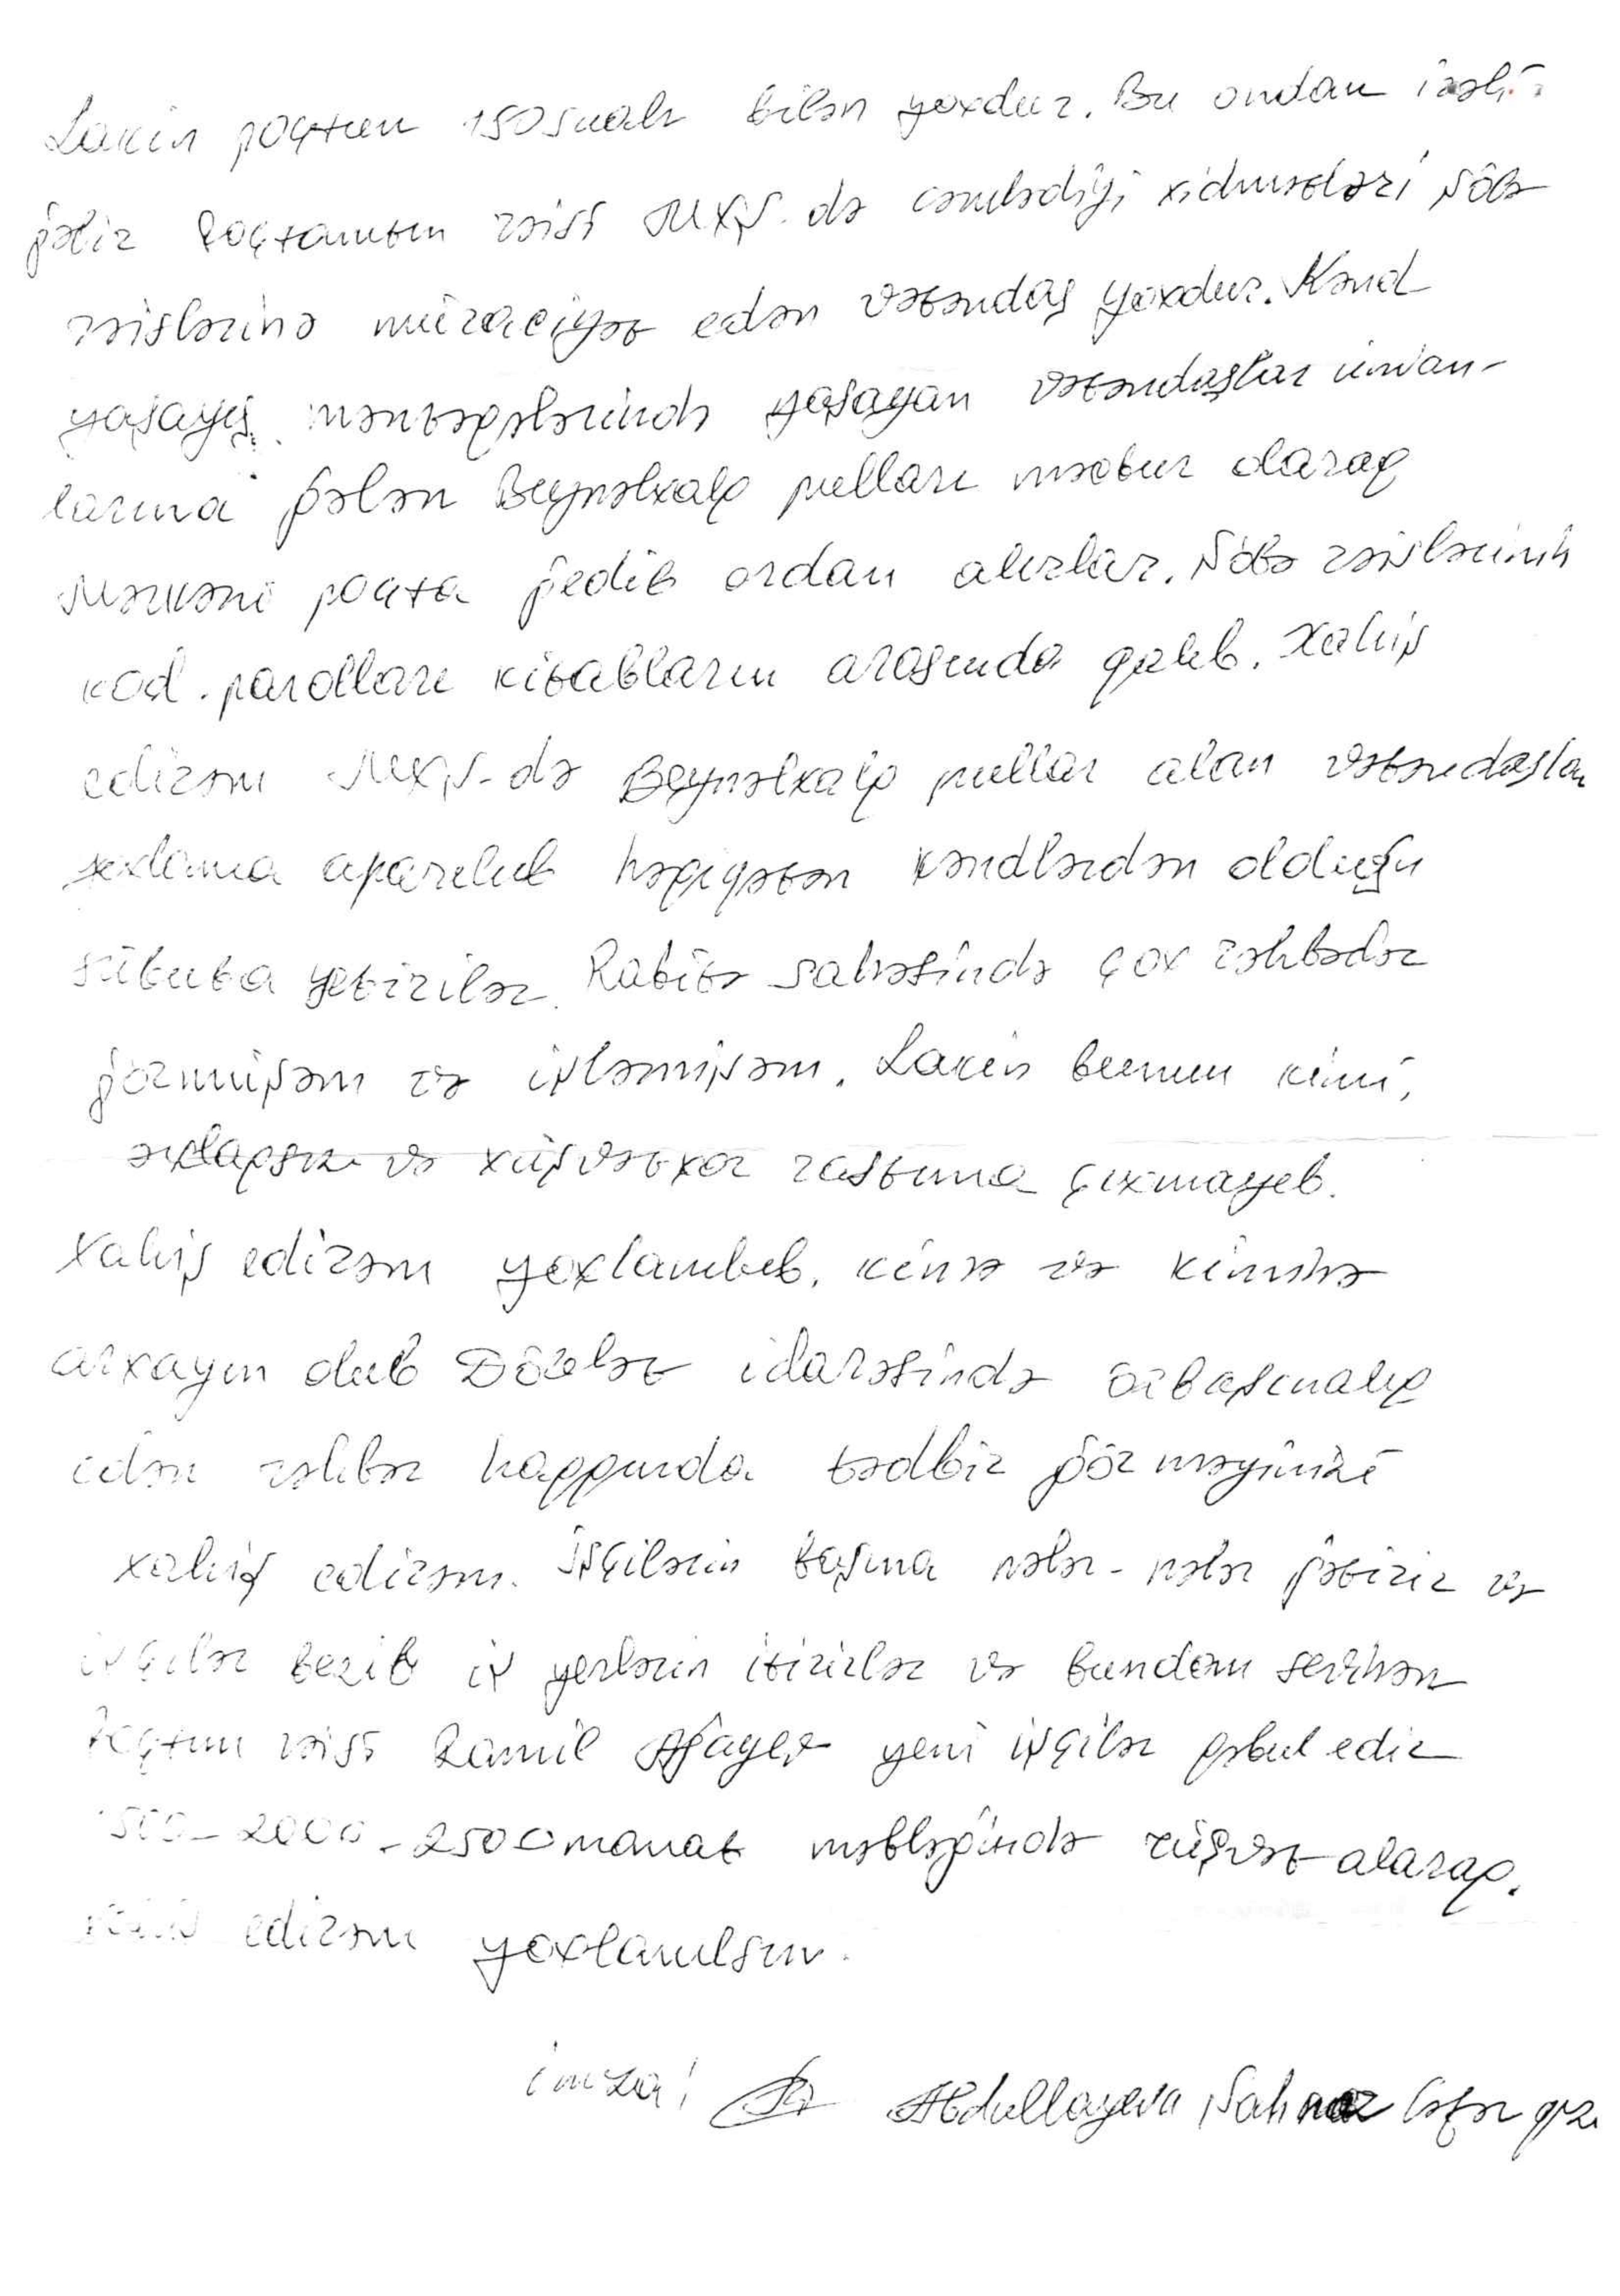 Lakin poçtun 150 sualı bilən yoxdur. Bu ondan irəli
gəlir Poçtamtın rəisi MXŞ-də cəmlədiyi xidmətləri Şöbə
rəislərinə müraciyət edən vətəndaş yoxdur. Kənd
yaşayış məntəqələrində yaşayan vətəndaşlar ünvan-
larına gələn Beynəlxalq pulları məcbur olaraq
Mərkəzi poçta gedib ordan alırlar. Şöbə rəislərinin
kod. parolları kitabların arasında qalıb. Xahiş
edirəm MXŞ-də Beynəlxalq pullar alan vətəndaşlar
yoxlama aparılıb həqiqətən kəndlərdən olduğu
sübuta yetirilər. Rabitə sahəsində çox rəhbərlər
görmüşəm və işləmişəm. Lakin bunun kimi,
əxlaqsız və rüşvətxor rastıma çıxmayıb.
Xahiş edirəm yoxlanılıb, kimə və kimlərə
arxayın olub Dövlət idarəsində özbaşınalıq
edən rəhbər haqqında tədbir görməyinizi
xahiş edirəm. İşçilərin başına nələr-nələr gətirir və
işçilər bezib iş yerlərin itirirlər və bundan sevinən
Poçtun rəisi Ramil Ağayev yeni işçilər qəbul edir
1500-2000-2500 manat məbləğində rüşvət alaraq.
Xahiş edirəm yoxlanılsın.
imza: Abdullayeva Şahnaz qızı